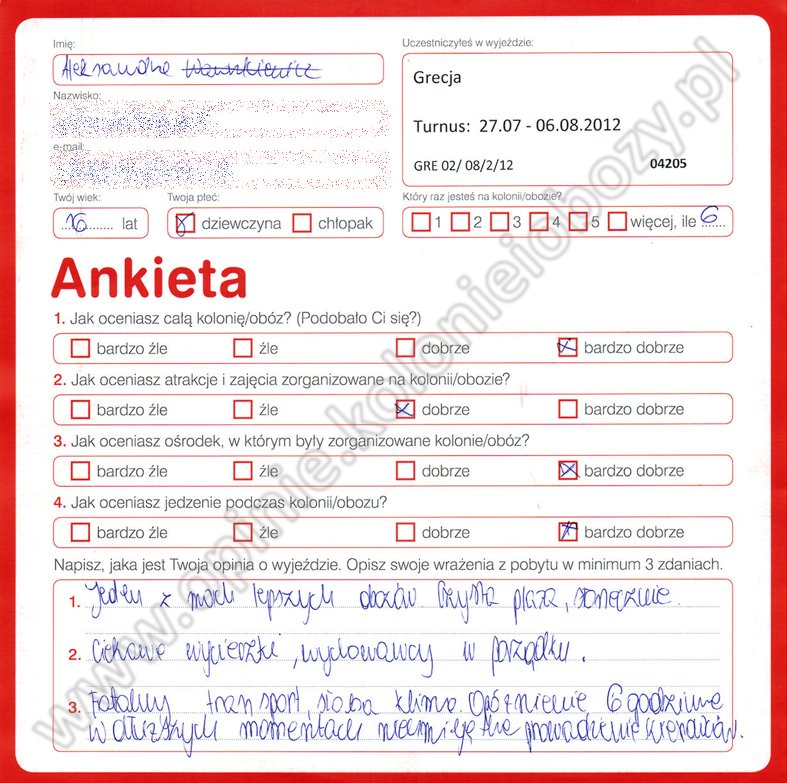 Imię:
Aleksandra
Nazwisko:
e-mail:
Twój wiek:
16 lat
Twoja płeć:
dziewczyna chłopak
Uczestniczyłeś w wyjeździe:
Grecja
Turnus: 27.07 - 06.08.2012
GRE 02/ 08/2/12 04205
Który raz jesteś na kolonii/obozie?
1 2 3 4 5 więcej, ile 6
Ankieta
1. Jak oceniasz całą kolonię/obóz? (Podobało Ci się?)
bardzo źle źle dobrze bardzo dobrze
2. Jak oceniasz atrakcje i zajęcia zorganizowane na kolonii/obozie?
bardzo źle źle dobrze bardzo dobrze
3. Jak oceniasz ośrodek, w którym były zorganizowane kolonie/obóz?
bardzo źle źle dobrze bardzo dobrze
4. Jak oceniasz jedzenie podczas kolonii/obozu?
bardzo źle źle dobrze bardzo dobrze
Napisz, jaka jest Twoja opinia o wyjeździe. Opisz swoje wrażenia z pobytu w minimum 3 zdaniach.
1. Jeden z moich lepszych obozów Czysta plaża, słonecznie.
2. Ciekawe wycieczki, wychowawcy w porządku.
3. Fatalny transport, słaba klima. Opóźnienie 6 godzinne
w dłuższych momentach prowadzenie
www.opinie.kolonieiobozy.pl